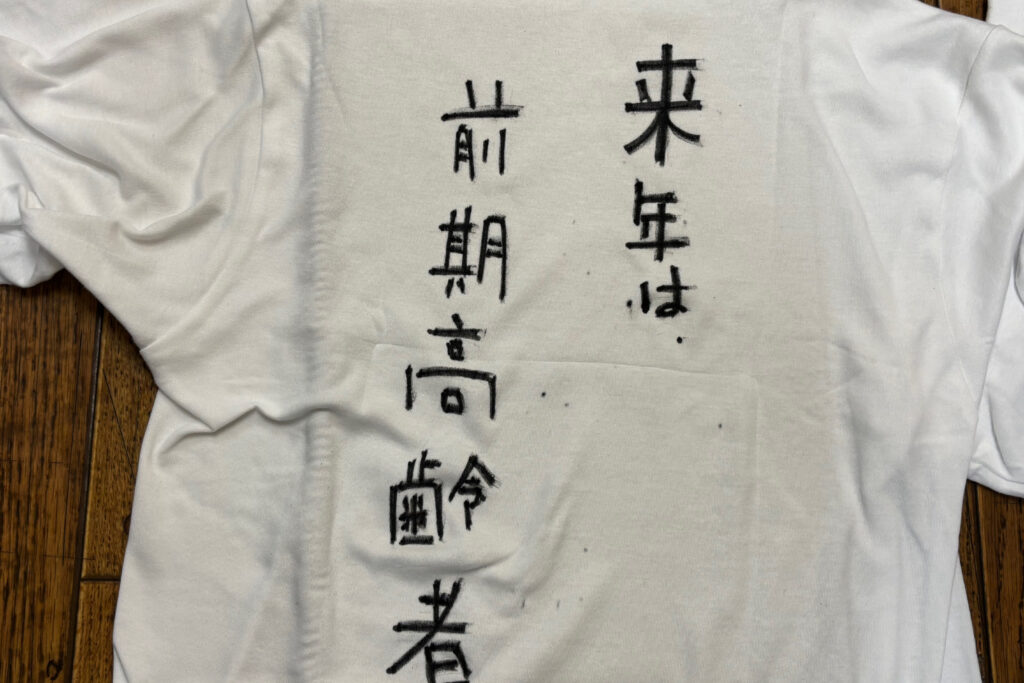 来年は
前期高齢者